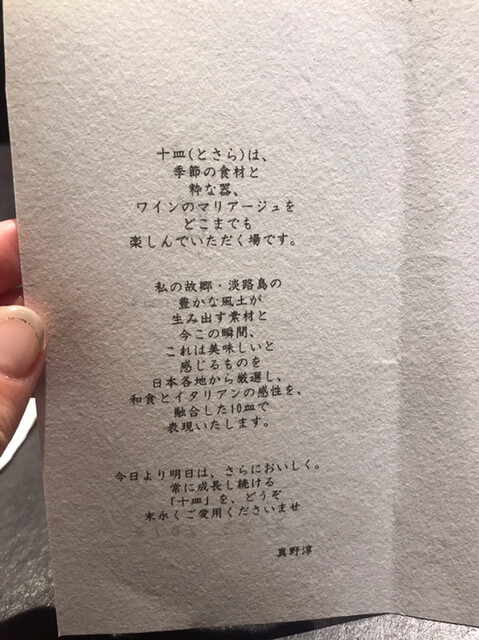 十皿(とさら)は、
季節の食材と
粋な器、
ワインのマリアージュを
どこまでも
楽しんでいただく場です。
私の故郷・淡路島の
豊かな風土が
生み出す素材と
今この瞬間、
これは美味しいと
感じるものを
日本各地から厳選し、
和食とイタリアンの感性を、
融合した10皿で
表現いたします。
今日より明日は、さらにおいしく。
常に成長し続ける
「十皿」を、どうぞ
末永くご愛用くださいませ
真野淳